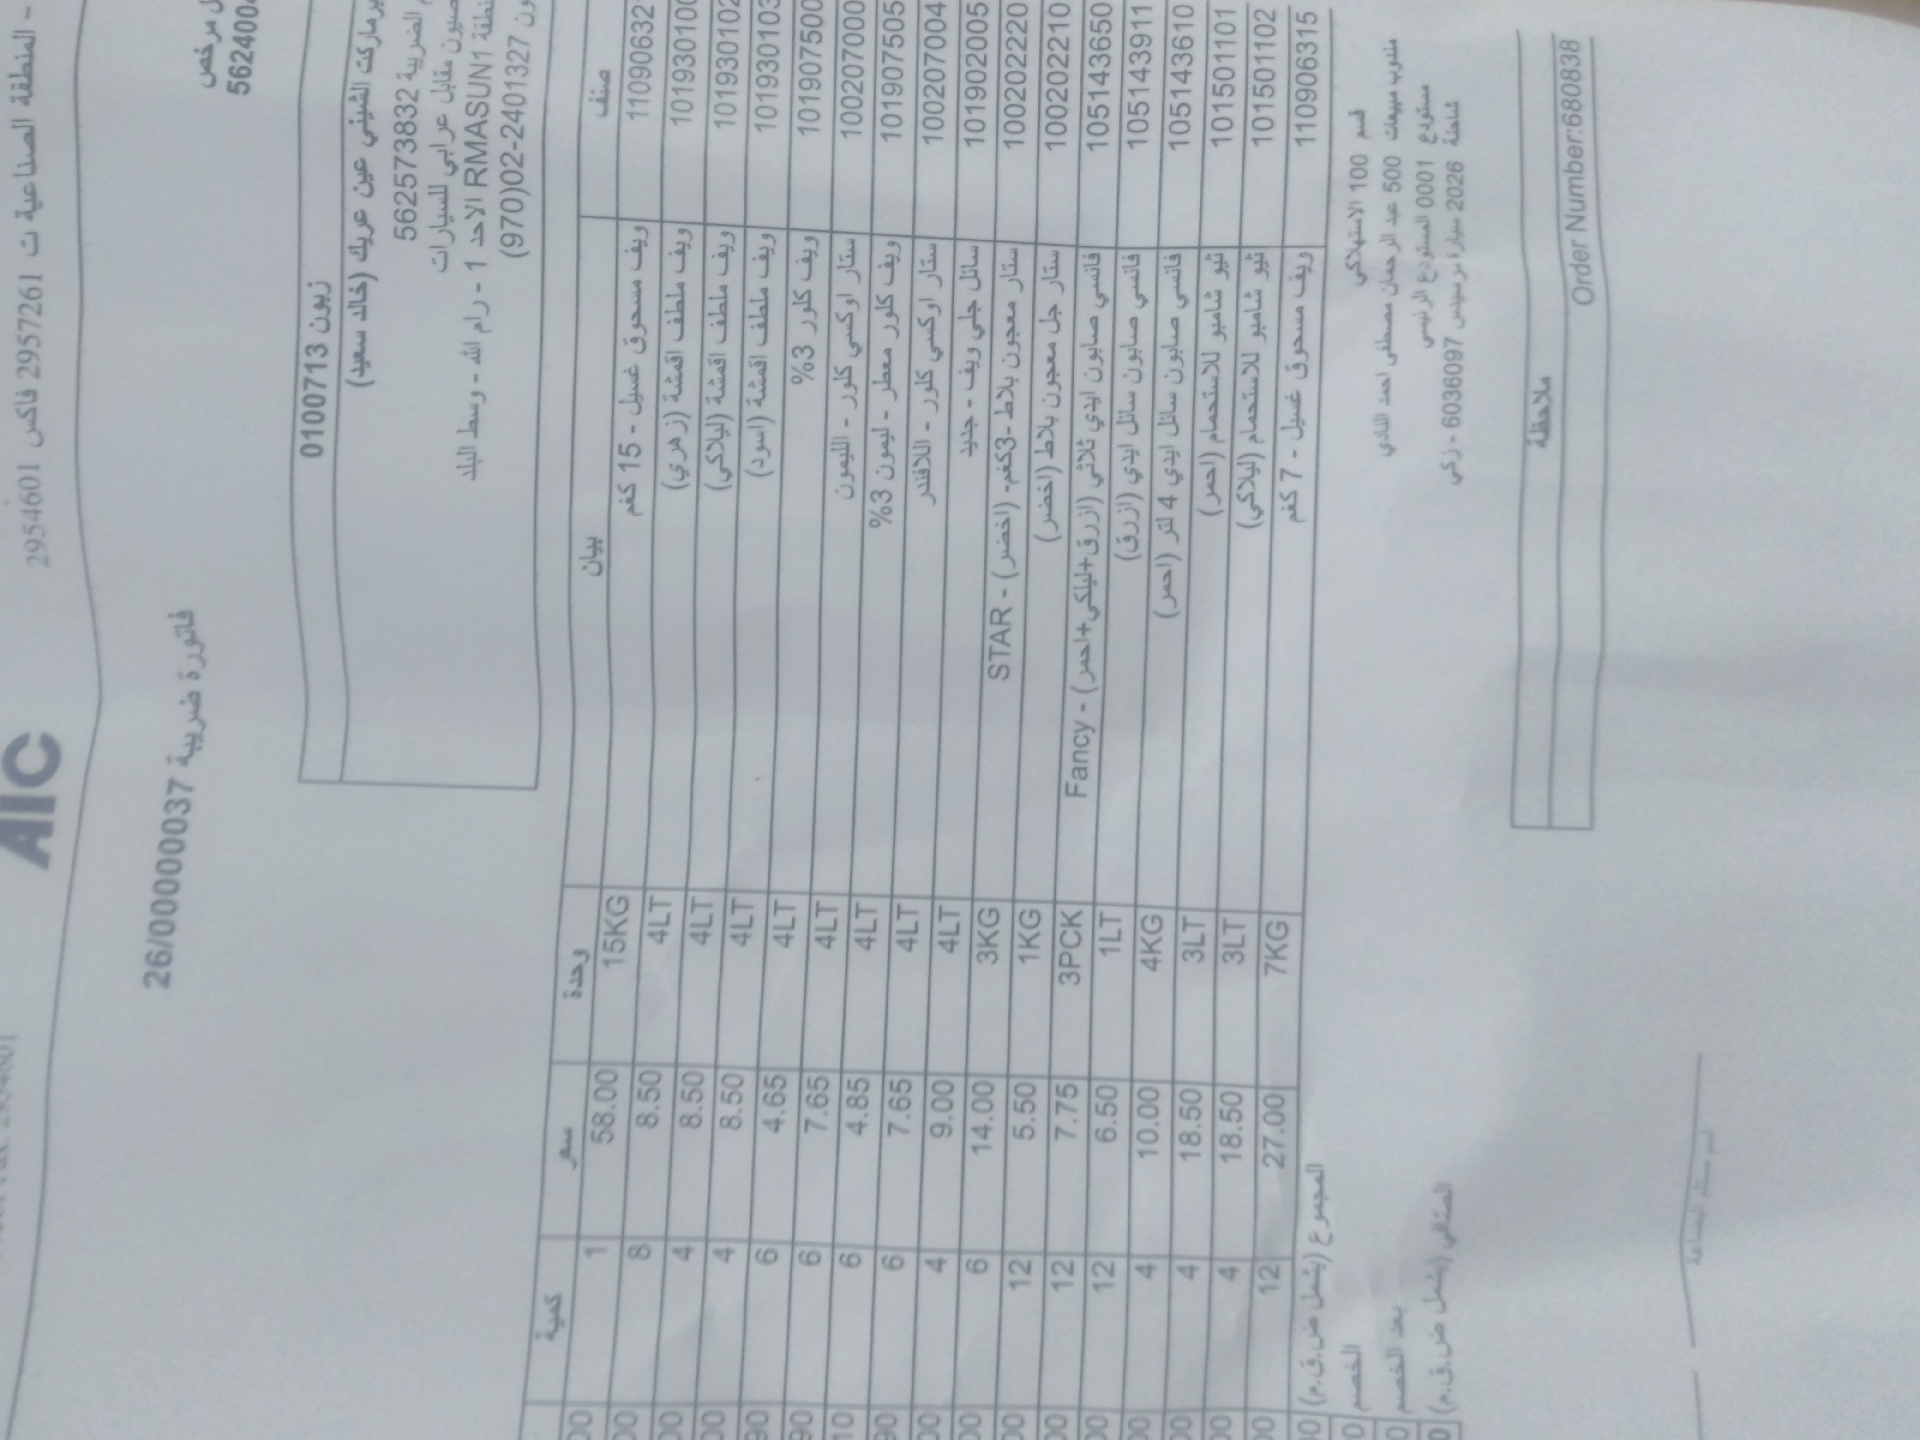 - المنطقة الصناعية ت 2957261 فاكس 2954601
AIC
مرخص
562400
فاتورة ضريبية 26/000000037
زبون 0100713
الشيني عين عريك (خالد سعيد)
الضريبة 562573832
مقابل عرابي للسيارات
RMASUN1 الاحد 1 - رام الله - وسط البلد
(970)02-2401327
صنف بيان وحدة سعر كمية
110906321 ويف مسحوق غسيل - 15 كغم 15KG 58.00 1
101930100 ويف ملطف اقمشة (زهري) 4LT 8.50 8
101930102 ويف ملطف اقمشة (ليلاكي) 4LT 8.50 4
101930103 ويف ملطف اقمشة (اسود) 4LT 8.50 4
101907500 ويف كلور 3% 4LT 4.65 6
100207000 ستار اوكسي كلور - الليمون 4LT 7.65 6
101907505 ويف كلور معطر - ليمون 3% 4LT 4.85 6
100207004 ستار اوكسي كلور - اللافندر 4LT 7.65 6
101902005 سائل جلي ويف - جديد 4LT 9.00 4
100202220 ستار معجون بلاط -3كغم- (اخضر) - STAR 3KG 14.00 6
100202210 ستار جل معجون بلاط (اخضر) 1KG 5.50 12
105143650 فانسي صابون ايدي ثلاثي (ازرق+ليلكي+احمر) - Fancy 3PCK 7.75 12
105143911 فانسي صابون سائل ايدي (ازرق) 1LT 6.50 12
105143610 فانسي صابون سائل ايدي 4 لتر (احمر) 4KG 10.00 4
101501101 نيو شامبو للاستحمام (احمر) 3LT 18.50 4
101501102 نيو شامبو للاستحمام (ليلاكي) 3LT 18.50 4
110906315 ويف مسحوق غسيل - 7 كغم 7KG 27.00 12
المجموع (يشمل ض.ق.م)
الخصم
بعد الخصم
(يشمل ض.ق.م)
قسم 100 الاستهلاكي
مندوب مبيعات 500 عبد الرحمان مصطفى احمد النادي
مستودع 0001 المستودع الرئيسي
شاحنة 2026 سيارة مرسيدس 6036097 - زكي
ملاحظة
Order Number:680838